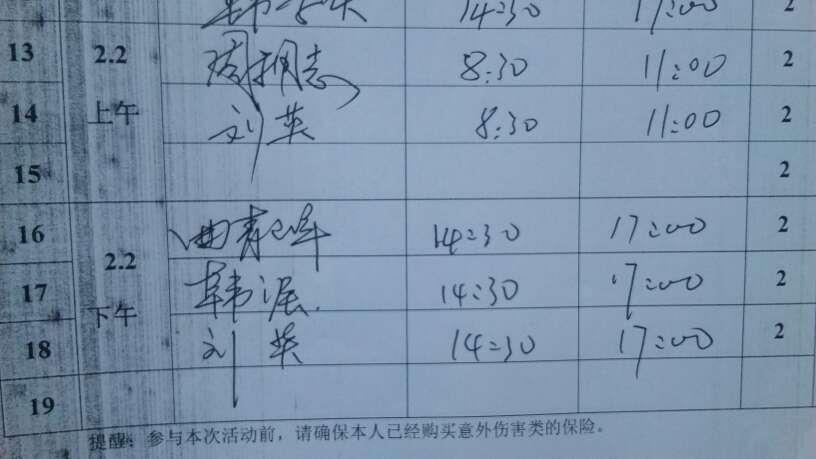 14:30 17:00 2
13 2.2 周拥志 8:30 11:00 2
14 上午 刘英 8:30 11:00 2
15 2
16 2.2 14:30 17:00 2
17 下午 韩 14:30 17:00 2
18 刘英 14:30 17:00 2
19
提醒：参与本次活动前，请确保本人已经购买意外伤害类的保险。